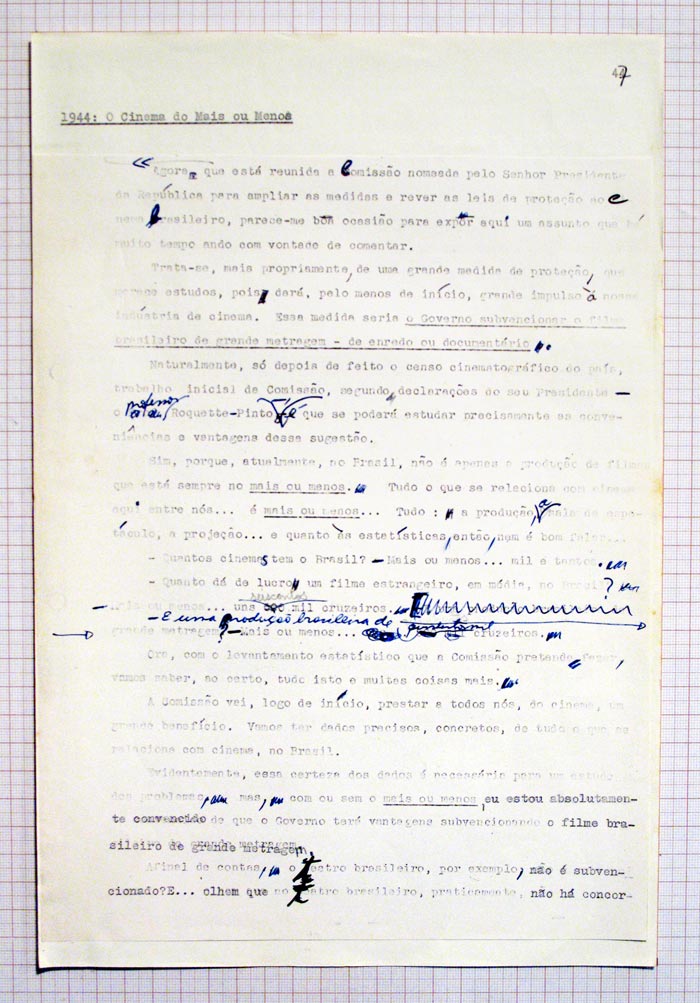 47
1944: O Cinema do Mais ou Menos
" Agora, que está reunida a Comissão nomeada pelo Senhor Presidente
da República para ampliar as medidas e rever as leis de proteção ao
nema brasileiro, parece-me boa ocasião para expor aqui um assunto que há
muito tempo ando com vontade de comentar.
Trata-se, mais propriamente, de uma grande medida de proteção, que
merece estudos, pois dará, pelo menos de início, grande impulso à nossa
indústria de cinema. Essa medida seria o Governo subvencionar o filme
brasileiro de grande metragem - de enredo ou documentário.
Naturalmente, só depois de feito o censo cinematográfico do país,
trabalho inicial da Comissão, segundo declarações do seu Presidente —
professor
o Roquette-Pinto, é que se poderá estudar precisamente as conve-
niências e vantagens dessa sugestão.
Sim, porque, atualmente, no Brasil, não é apenas a produção de filmes
que está sempre no mais ou menos. Tudo o que se relaciona com cinema
aqui entre nós... é mais ou menos... Tudo: a produção, a sala de espe-
táculo, a projeção... e quanto às estatísticas, então, nem é bom falar...
- Quantos cinemas tem o Brasil? - Mais ou menos... mil e tantos.
- Quanto dá de lucro um filme estrangeiro, em média, no Brasil?
seiscentos
Mais ou menos... uns mil cruzeiros.
- E uma produção brasileira de
grande metragem? - Mais ou menos... cruzeiros.
Ora, com o levantamento estatístico que a Comissão pretende fazer,
vamos saber, ao certo, tudo isto e muitas coisas mais.
A Comissão vai, logo de início, prestar a todos nós, do cinema, um
grande benefício. Vamos ter dados precisos, concretos, de tudo o que se
relaciona com cinema, no Brasil.
Evidentemente, essa certeza dos dados é necessária para um estudo
dos problemas, mas, com ou sem o mais ou menos, eu estou absolutamen-
te convencido de que o Governo terá vantagens subvencionando o filme bra-
sileiro de grande metragem.
Afinal de contas, o teatro brasileiro, por exemplo, não é subven-
cionado? E... olhem que no teatro brasileiro, praticamente, não há concor-